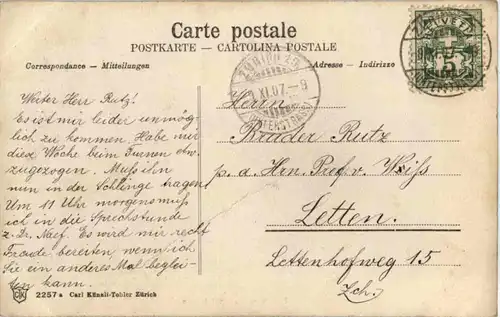 Carte postale
POSTKARTE – CARTOLINA POSTALE
Correspondance - Mitteilungen
Adresse - Indirizzo
HELVETIA
5
ZÜRICH
XI.07.–9
Werter Herr Rutz!
Es ist mir leider unmög-
lich zu kommen. Habe mir
diese Woche beim Turnen etw.
zugezogen. Muss ihn
nun in der Schlinge tragen
Um 11 Uhr morgens muss
ich in die Sprechstunde
z. Dr. Naef. Es wird mir recht
Freude bereiten wenn ich
Sie ein anderes Mal beglei-
ten kann.
Herrn
Bruder Rutz
p. a. Hrn. Prof. v. Wyss
Letten.
Lettenhofweg 15
Zch.
CK 2257 a Carl Künzli-Tobler Zürich